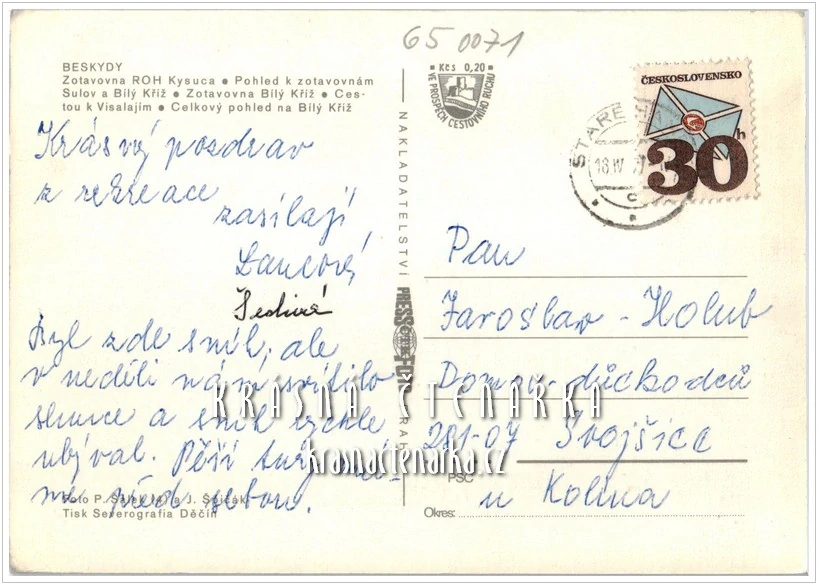 65 0071
BESKYDY
Zotavovna ROH Kysuca ● Pohled k zotavovnám
Sulov a Bílý Kříž ● Zotavovna Bílý Kříž ● Ces-
tou k Visalajím ● Celkový pohled na Bílý Kříž
Krásný pozdrav
z rekreace
zasílají
Lancová
Šedivá
Byl zde sníh, ale
v neděli nám svítilo
slunce a sníh rychle
ubýval. Pěší túry má-
me před sebou.
Foto P. Šálek (4) a J. Špičák
Tisk Severografia Děčín
NAKLADATELSTVÍ PRESSFOTO PRAHA
Kčs 0,20
VE PROSPĚCH CESTOVNÍHO RUCHU
ČESKOSLOVENSKO
30h
STARÉ
18.IV
c
Pan
Jaroslav Holub
Domov důchodců
281-07 Svojšice
PSČ
u Kolína
Okres:
KRÁSNÁ ČTENÁŘKA
krasnactenarka.cz